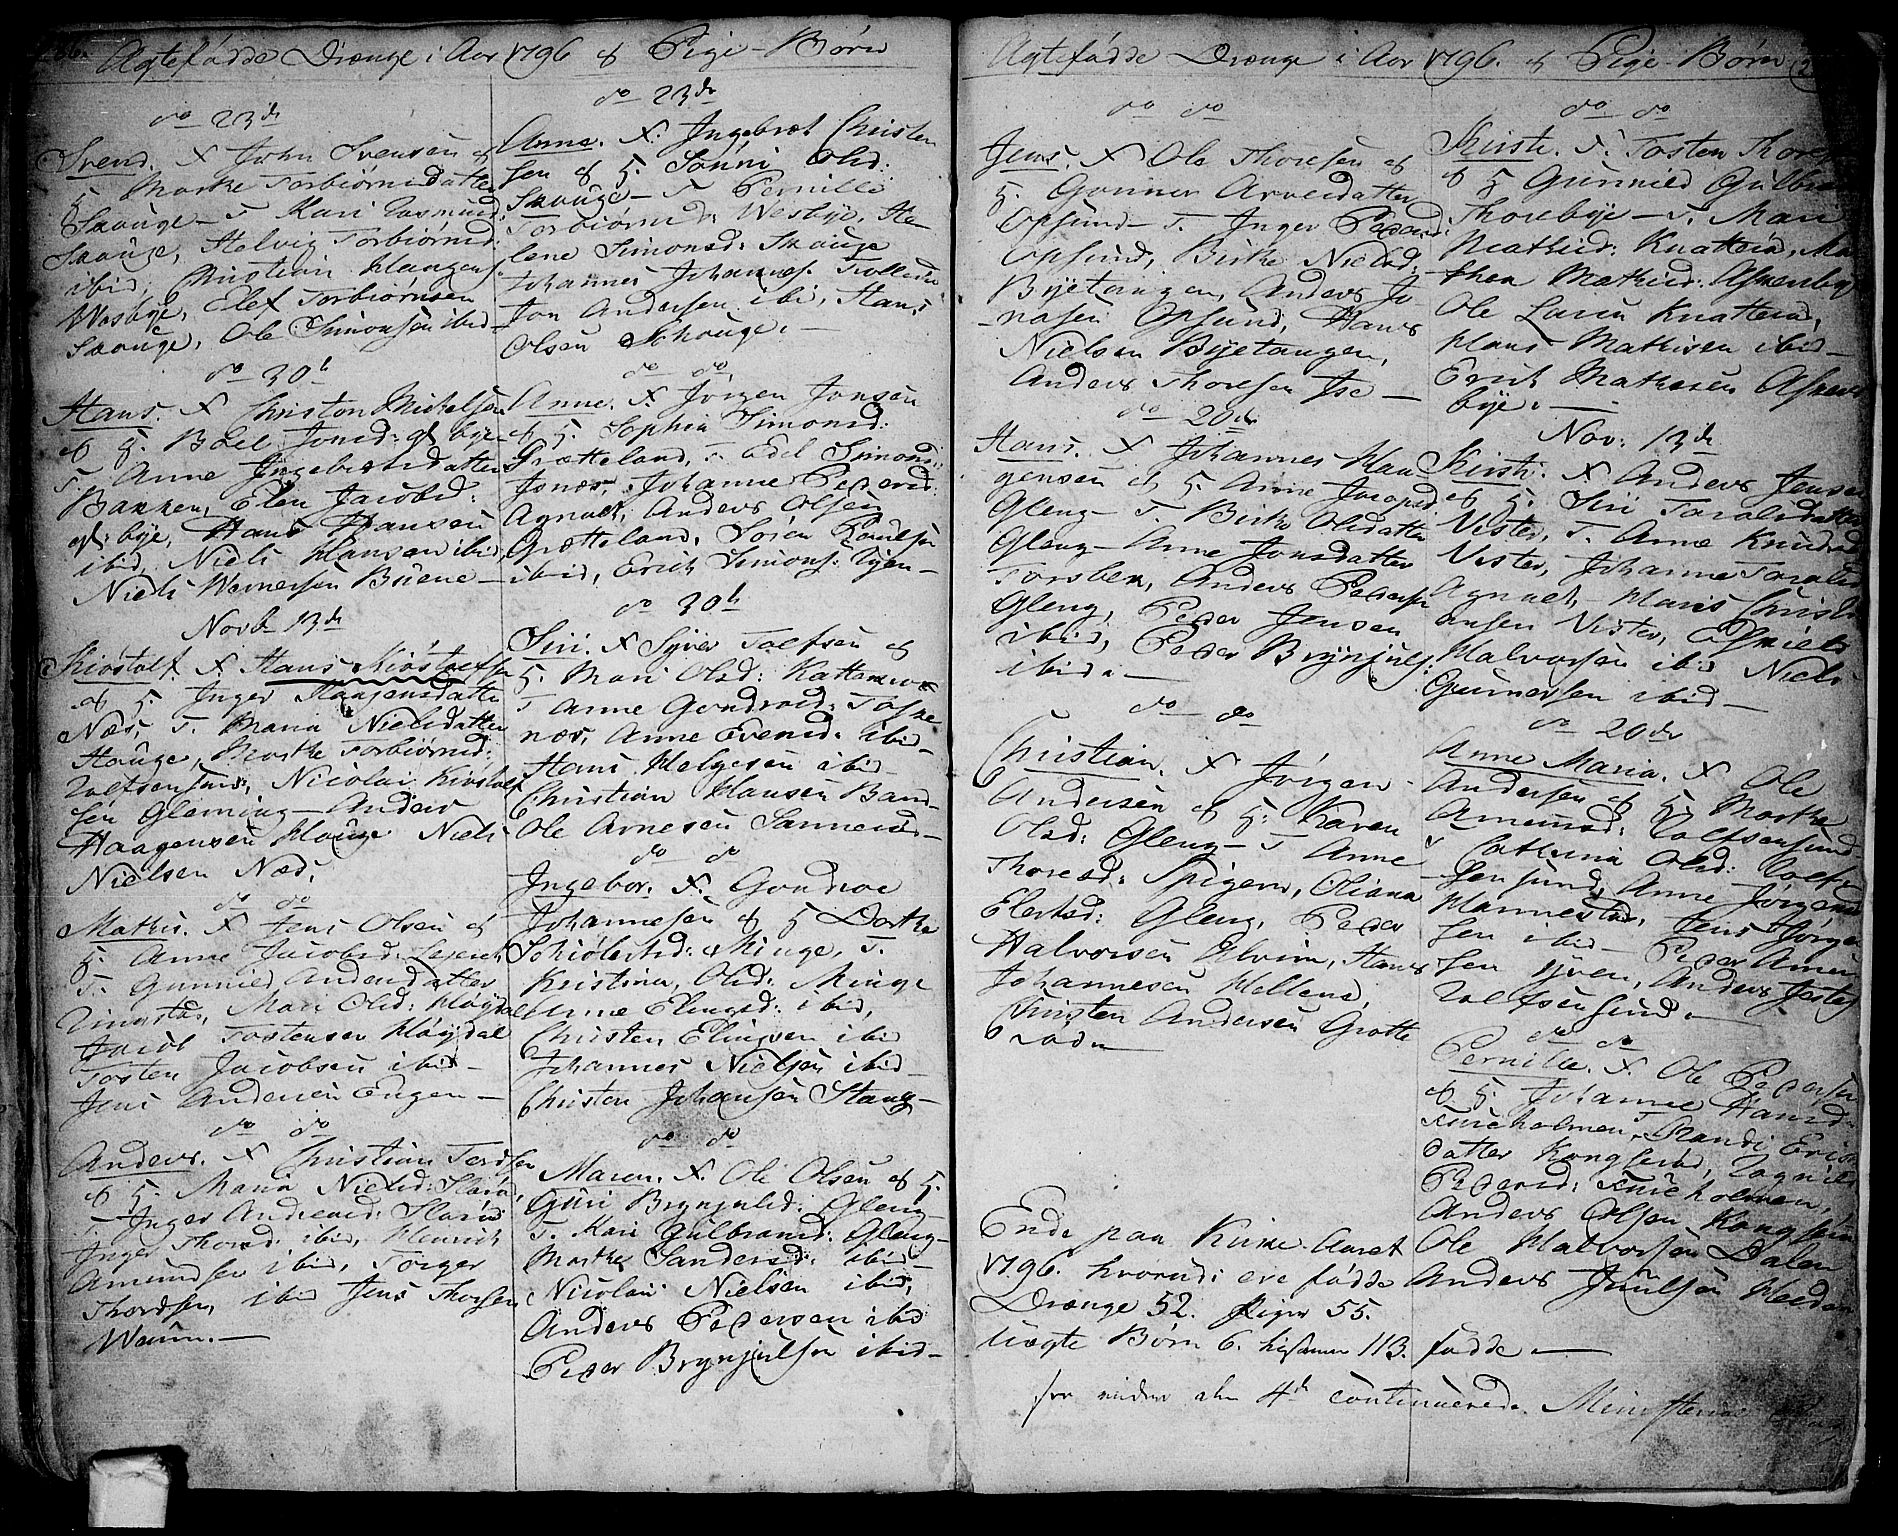 Ægtefødde Drænge i Aar 1796 & Pige-Børn
do 23de
Svend. F. John Svensen &
H. Marthe Torbiørnsdatter
Skouge - T. Kari Rasmusd:
Skouge, Helvig Torbiørnsd:
ibid, Christian Haagens:
Wesbye, Elef Torbiørnsen
Skouge, Ole Simonsen ibid-
do 30te
Hans. F. Christen Michelsen
& H. Boel Jonsd: gl bye-
T. Anne Ingebretsdatter
Bakken, Elen Jacobsd:
gl: bye, Hans Hansen
ibid, Niels Hansen ibid
Niels Wernersen Buene-
Novb- 13de
Kiøstolf F. Hans Kiøstolfs:
& H. Inger Haagensdatter
Næs, T. Maria Nielsdatter
Hauge, Marthe Torbiørnsd:
Rolfsensund, Nicolai Kiøstolf
sen Glemming - Anders
Haagensen Hauge Niels
Nielsen Næs.
do do
Mathis. F. Jens Olsen &
H. Anne Jacobsd:
T. Gunnild Andersdatter
Ringstad, Mari Olsd: Høydal
Jacob Tostensen Høydal
Tosten Jacobsen ibid-
Jens Andersen Engen-
do do
Anders. F. Christian Tordsen
& H. Maria Nielsd:
T. Inger Andersd:
Inger Thorsd: ibid, Henrich
Amundsen ibid, Torger
Thordsen, ibid Jens Thorsen
do 23de
Anne. F. Ingebret Christen
sen & H. Sønni Olsd:
Skouge- T Pernille
Torbiørnsd: Wesbye, He
lene Simonsd: Skouge
Johannes Johannes:
Jon Andersen ibid, Hans
Olsen Schouge.-
do do
Anne. F. Jørgen Jonsen
& H. Sophia Simonsd:
Grætteland, T. Edel Simonsd:
Jonæs, Johanne Pedersd:
Agnalt, Anders Olsen
Grætteland, Søren Poulsen
ibid, Erich Simons: Igien-
do 30te
Siri. F. Syver Tolfsen &
H. Mari Olsd:
T Anne Gondrosd: Toske
næs, Anne Evensd: ibid-
Hans Helgesen ibid-
Christian Hansen
Ole Arnesen Sannerød-
do do
Ingebor. F. Gondroe
Johannesen & H Dorthe
Schiølersd: Minge, T.
Kristina Olsd: Minge
Anne Elingsd: ibid,
Christen Elingsen ibid
Johannes Nielsen ibid-
Christen Johansen Stang-
do do
Maren. F. Ole Olsen & H.
Guri Brynjulsd: Gleng-
T. Kari Gulbransd: Gleng-
Marthe Sandersd: ibid-
Nicolai Nielsen ibid,
Anders Pedersen ibid
Peder Brynjulsen ibid-
Ægtefødde Drænge i Aar 1796. & Pige-Børn
do do
Jens. F. Ole Thoresen &
H. Gunner Arvesdatter
Opsund- T. Inger Pedersd:
Opsund, Birthe Nielsd:
Bijetangen, Anders Jo-
nasen Opsund, Hans
Nielsen Bijetangen,
Anders Thoresen Ise -
do 20de
Hans. F. Johannes Haa
gensen & H. Anne Jacobsd
Gleng- T. Birthe Olsdatter
Gleng- Anne Jonsdatter
Torsbek, Anders Peders:
Gleng, Peder Jensen
ibid, Peder Brynjuls:
ibid.-
do do
Christian. F. Jørgen
Andersen & H: Karen
Olsd: Gleng- T Anne
Thoresd: Spigern, Oliana
Elertsd: Gleng, Peder
Halvorsen Alvim, Hans
Johannesen Hellene,
Christen Andersen Grotte
rød.-
Ende paa Kirke-Aaret
1796. hvorudi ere fødde
Drænge 52. Piger 55.
uægte Børn 6. tilsammen 113. fødde -
continuerede Ministerial
do do
Kirsti. F. Tosten Thores:
& H Gunnild Gulbr
Thorebye- T. Mari
Mathisd: Knatterød, Ma
thea Mathisd: Askerbye
Ole Larsen Knatterød,
Hans Mathisen ibid-
Erich Mathesen Asker
bye.-
Nov: 13de
Kirsti. F. Anders Jensen
& H. Siri Toralsdatter
Vister, T. Anne Knudsd
Vister, Johanne Toralsd
Agnalt, Hans Christi
ansen Vister,
Halvorsen ibid Niels
Gunnersen ibid-
do 20de
Anne Maria. F. Ole
Andersen & H. Marthe
Amundsd: Rolfsensund-
T Cathrina Olsd: Rolf
sensund, Anne Jørgens
Hannestad, Jens Jørgen
sen ibid- Peder Amun
sen Ijven, Anders Jostes
Rolfsensund.-
do do
Pernille. F. Ole Pedersen
& H. Johanne Hansd:
Furuholmen, T Randi Erics
datter Kongsrød, Ragnild
Pedersd: Furuholmen,
Anders Olsen Kongsrød
Ole Halvorsen Dalen
Anders Juulsen